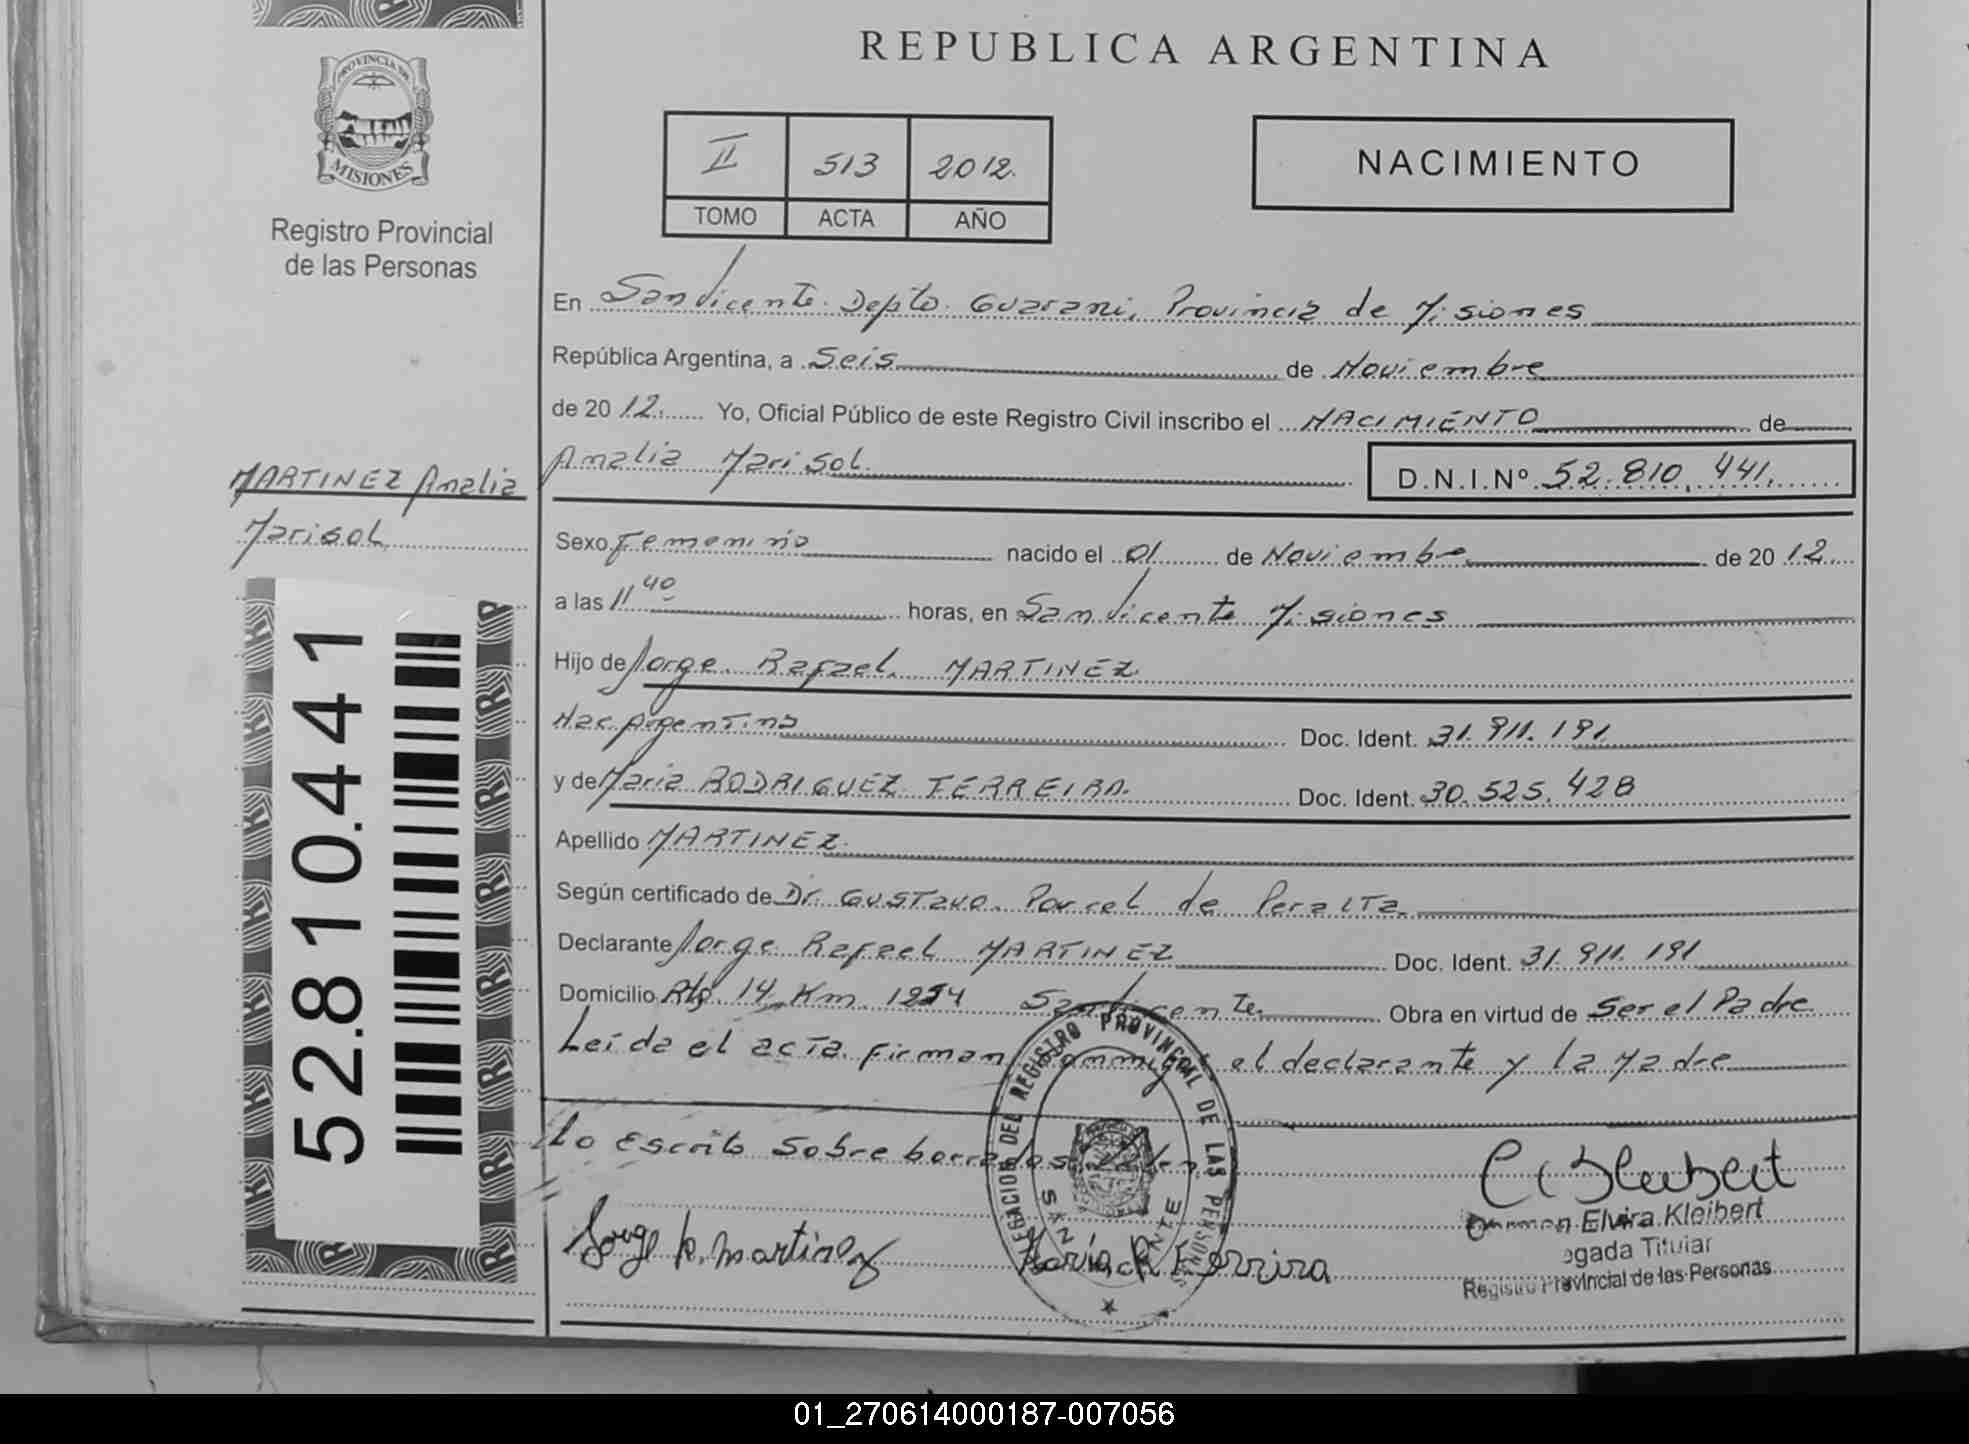 REPUBLICA ARGENTINA
PROVINCIA DE
MISIONES
Registro Provincial
de las Personas
II 513 2012.
TOMO ACTA AÑO
NACIMIENTO
En San Vicente. Depto. Guarani, Provincia de Misiones
República Argentina, a Seis de Noviembre
de 20 12. Yo, Oficial Público de este Registro Civil inscribo el NACIMIENTO de
Amalia Marisol. D.N.I.Nº 52.810.441.
MARTINEZ Amalia
Marisol
52.810.441
Sexo Femenino nacido el 01 de Noviembre de 20 12
a las 11 40 horas, en San Vicente Misiones
Hijo de Jorge Rafael MARTINEZ
Nac. Argentina Doc. Ident. 31.911.191
y de Maria RODRIGUEZ FERREIRA. Doc. Ident. 30.525.428
Apellido MARTINEZ
Según certificado de Dr. Gustavo Porcel de Peralta
Declarante Jorge Rafael MARTINEZ Doc. Ident. 31.911.191
Domicilio Rta. 14 Km. 1254 San Vicente Obra en virtud de Ser el Padre
Leída el acta firman conmigo el declarante y la Madre
Lo Escrito Sobre borrados Valen
DELEGACION DEL REGISTRO PROVINCIAL DE LAS PERSONAS
SAN VICENTE
Jorge R. Martinez
María R Ferrira
C E Kleibert
Carmen Elvira Kleibert
egada Titular
Registro Provincial de las Personas
01_270614000187-007056